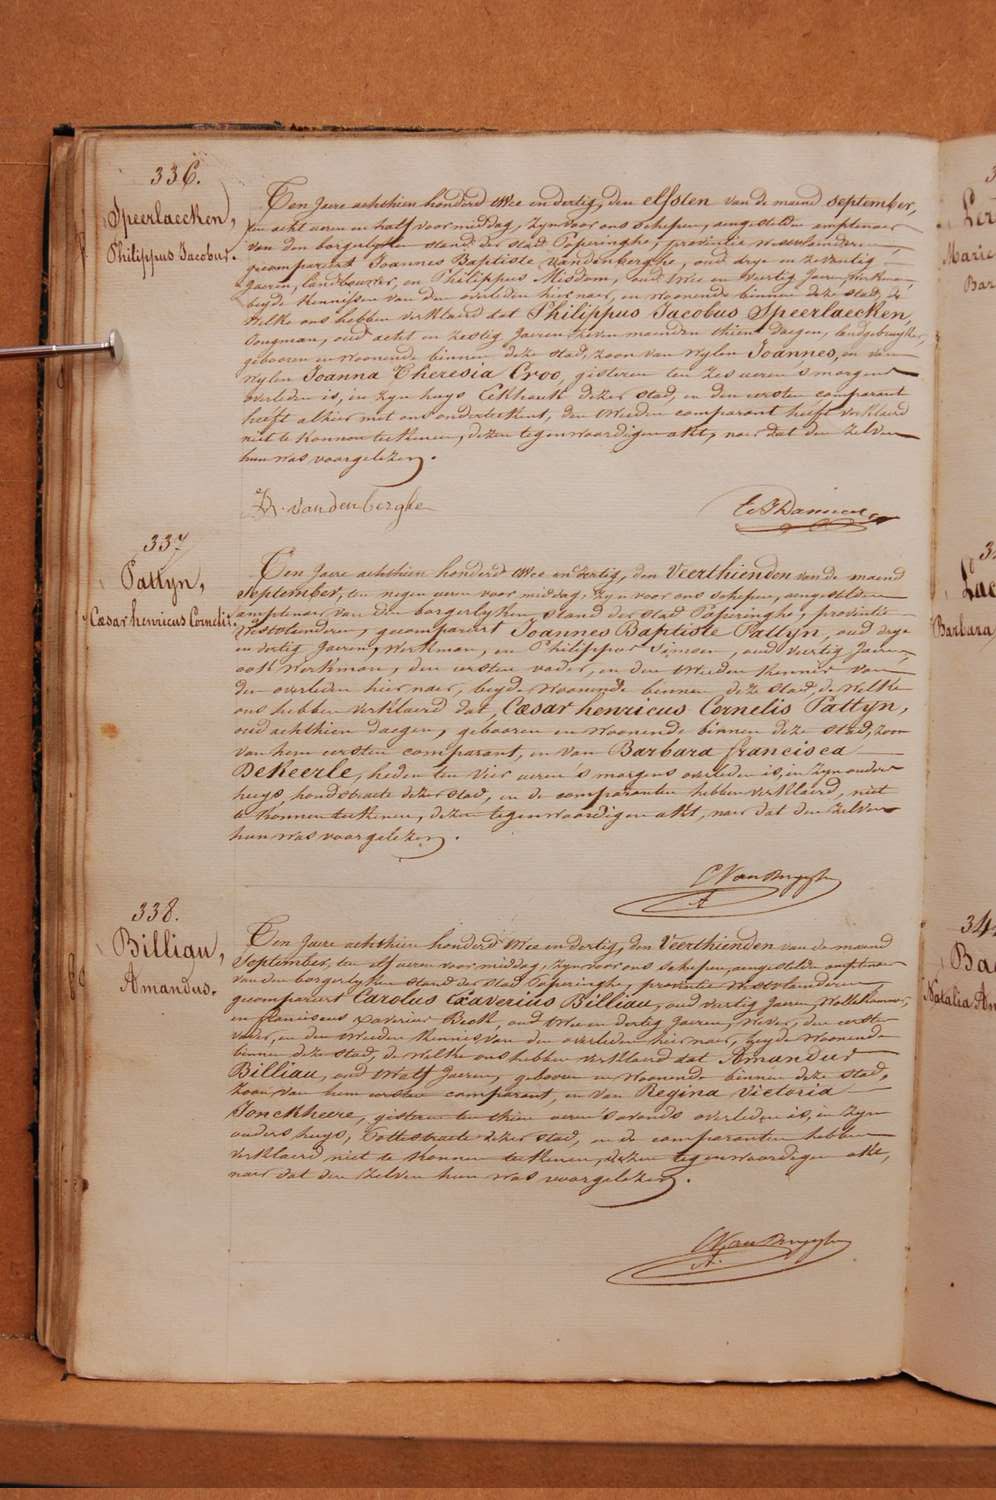 336.
Speerlaecken,
Philippus Jacobus.
Ten Jaere achthien honderd twee en dertig, den elfsten van de maend september,
ten acht ueren en half voor middag, zyn voor ons schepen, aengestelden amptenaer
van den borgerlyken stand der stad Poperinghe, provintie Westvlaenderen,
gecompareert Joannes Baptiste Vandenberghe, oud drye en zeventig
Jaeren, landbouwer, en Philippus Misdom, oud twee en veertig Jaeren, werkman,
beyde Kennissen van den overleden hier naer, en woonende binnen deze stad, de
welke ons hebben verklaerd dat Philippus Jacobus Speerlaecken,
Jongman, oud acht en zestig Jaeren zeven maenden thien daegen, landgebruyker,
gebooren en woonende binnen deze stad, zoon van wylen Joannes, en van
wylen Joanna Theresia Croo, gisteren ten zes ueren 's morgens
overleden is, in zyn huys Eekhoutk dezer stad, en den eersten comparant
heeft alhier met ons onderteekent, den tweeden comparant heeft verklaerd
niet te konnen teekenen, dezen tegenwoordigen akt, naer dat den zelven
hun was voorgelezen.
Vandenberghe
337
Pattyn,
Cæsar henricus Cornelis.
Ten Jaere achthien honderd twee en dertig, den Veerthienden van de maend
September, ten negen ueren voor middag, zyn voor ons schepen, aengestelden
amptenaer van den borgerlyken stand der stad Poperinghe, provintie
Westvlaenderen, gecompareert Joannes Baptiste Pattyn, oud drye
en dertig Jaeren, Werkman, en Philippus Simoen, oud veertig Jaeren,
ook Werkman, den eersten vader, en den tweeden Kennis van
den overleden hier naer, beyde woonende binnen deze stad, de welke
ons hebben verklaerd dat, Cæsar henricus Cornelis Pattyn,
oud achthien daegen, gebooren en woonende binnen deze stad, zoon
van hem eersten comparant, en van Barbara francisca
DeKeerle, heden ten vier ueren 's morgens overleden is, in zyn ouders
huys, hondstraete dezer stad, en de comparanten hebben verklaerd, niet
te konnen teekenen, dezen tegenwoordigen akt, naer dat den zelven
hun was voorgelezen.
338.
Billiau,
Amandus.
Ten Jaere achthien honderd twee en dertig, den Veerthienden van de maend
September, ten elf ueren voor middag, zyn voor ons schepen, aengestelden amptenaer
van den borgerlyken stand der stad Poperinghe, provintie Westvlaenderen
gecompareert Carolus Xaverius Billiau, oud veertig Jaeren, Wollekammer,
en franciscus Xaverius Beck, oud twee en dertig Jaeren, Wever, den eersten
vader, en den tweeden Kennis van den overleden hier naer, beyde woonende
binnen deze stad, de welke ons hebben verklaerd dat Amandus
Billiau, oud twalf Jaeren, gebooren en woonende binnen deze stad,
zoon van hem eersten comparant, en van Regina Victoria
Jonckheere, gisteren ten thien ueren s'avonds overleden is, in zyn
ouders huys, Pottestraete dezer stad, en de comparanten hebben
verklaerd niet te konnen teekenen, dezen tegenwoordigen akt,
naer dat den zelven hun was voorgelezen.
Marie
Barbara
Natalia